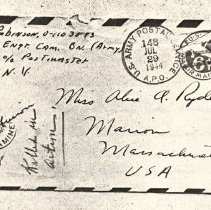 Robinson, O-1103893
Engr. Cam. Bn. (Army)
c/o Postmaster
N. Y.
U.S. ARMY POSTAL SERVICE
148
JUL
29
1944
A.P.O.
Miss Alice A. Ryd
Marion
Massachus
USA
Killed in
action!